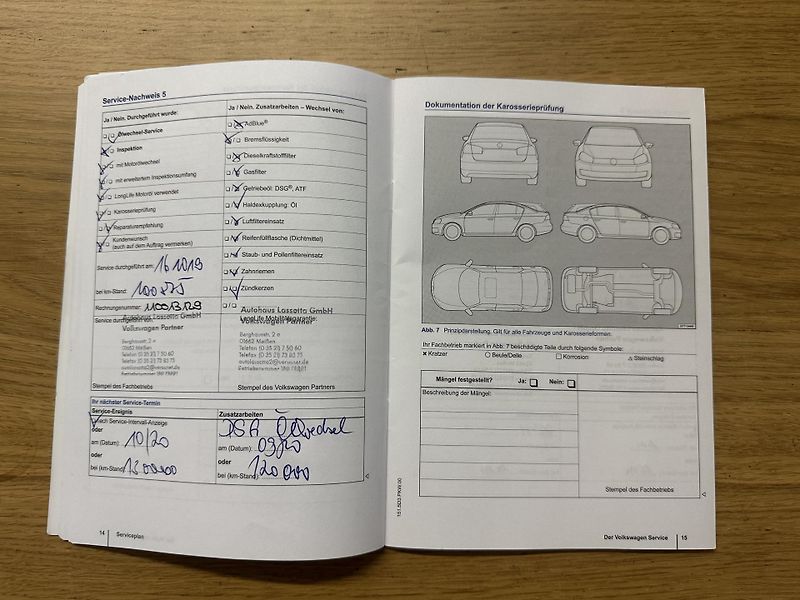 Service-Nachweis 5
Ja / Nein. Durchgeführt wurde:
Ölwechsel-Service
Inspektion
mit Motorölwechsel
mit erweitertem Inspektionsumfang
LongLife Motoröl verwendet
Karosserieprüfung
Reparaturempfehlung
Kundenwunsch
(auch auf dem Auftrag vermerken)
Service durchgeführt am: 16 10 19
bei km-Stand:
Rechnungsnummer:
Service durchgeführt von:
Autohaus Lassotta GmbH
Volkswagen Partner
Berghausstr. 2 a
01662 Meißen
Telefon (0 35 21) 7 50 60
Stempel des Fachbetriebs
Ja / Nein. Zusatzarbeiten – Wechsel von:
AdBlue®
Bremsflüssigkeit
Dieselkraftstofffilter
Gasfilter
Getriebeöl: DSG®, ATF
Haldexkupplung: Öl
Luftfiltereinsatz
Reifenfüllflasche (Dichtmittel)
Staub- und Pollenfiltereinsatz
Zahnriemen
Zündkerzen
Autohaus Lassotta GmbH
Volkswagen Partner
LongLife Mobilitätsgarantie:
Berghausstr. 2 a
01662 Meißen
Telefon (0 35 21) 7 50 60
Stempel des Volkswagen Partners
Ihr nächster Service-Termin
Service-Ereignis
nach Service-Intervall-Anzeige
oder
am (Datum): 10/20
oder
bei (km-Stand): 130000
Zusatzarbeiten
DSG Ölwechsel
am (Datum): 03/20
oder
bei (km-Stand): 120 000
14 Serviceplan
Dokumentation der Karosserieprüfung
Abb. 7 Prinzipdarstellung. Gilt für alle Fahrzeuge und Karosserieformen.
Ihr Fachbetrieb markiert in Abb. 7 beschädigte Teile durch folgende Symbole:
x Kratzer ○ Beule/Delle □ Korrosion △ Steinschlag
Mängel festgestellt? Ja: Nein:
Beschreibung der Mängel:
Stempel des Fachbetriebs
151.5D3.PKW.00
Der Volkswagen Service 15